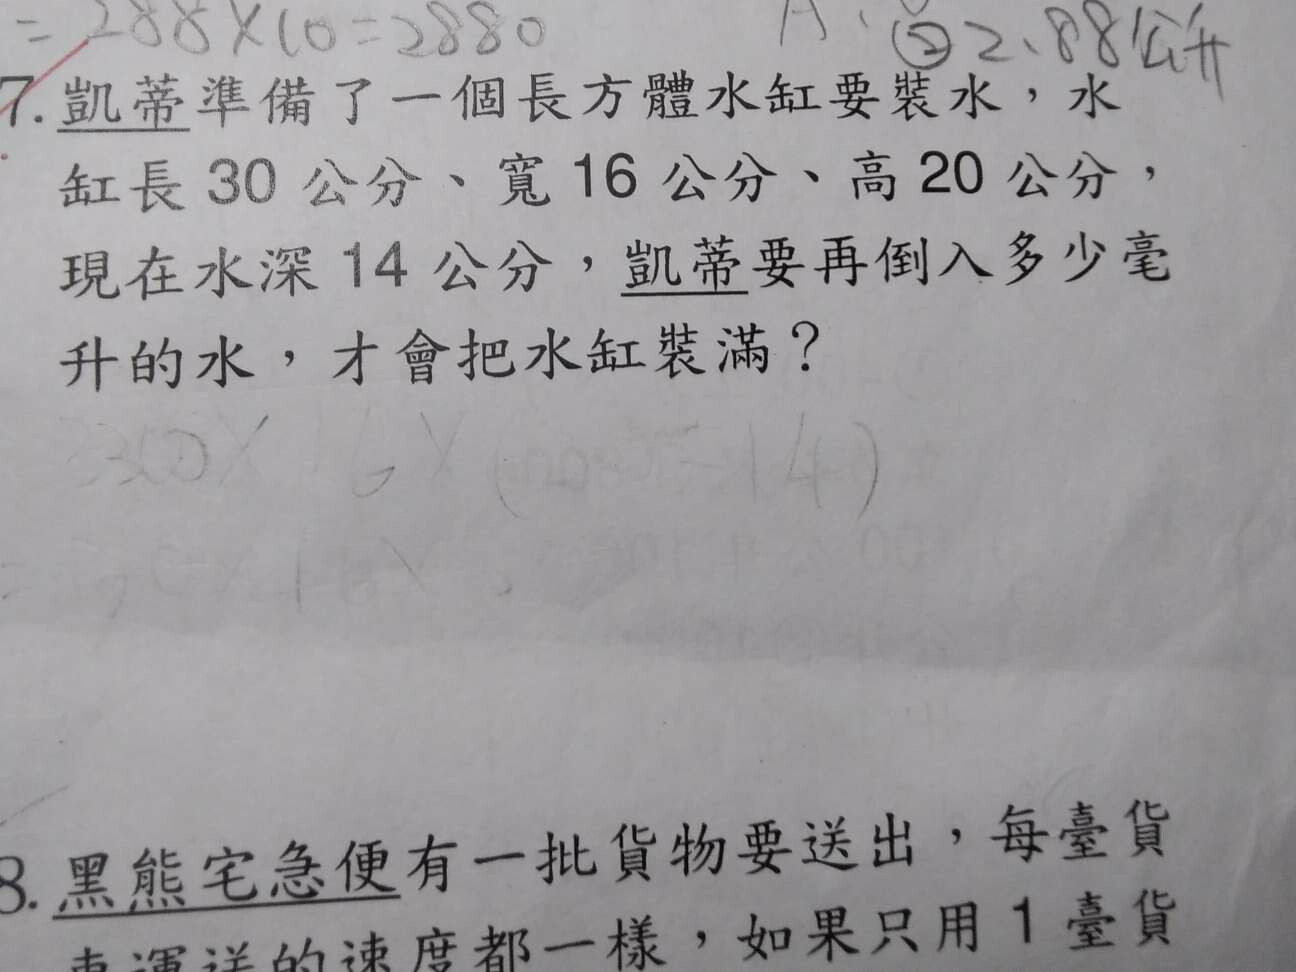 = 288×10=2880
A:② 2.88公升
7. 凱蒂準備了一個長方體水缸要裝水，水
缸長 30 公分、寬 16 公分、高 20 公分，
現在水深 14 公分，凱蒂要再倒入多少毫
升的水，才會把水缸裝滿？
8. 黑熊宅急便有一批貨物要送出，每臺貨
車運送的速度都一樣，如果只用 1 臺貨